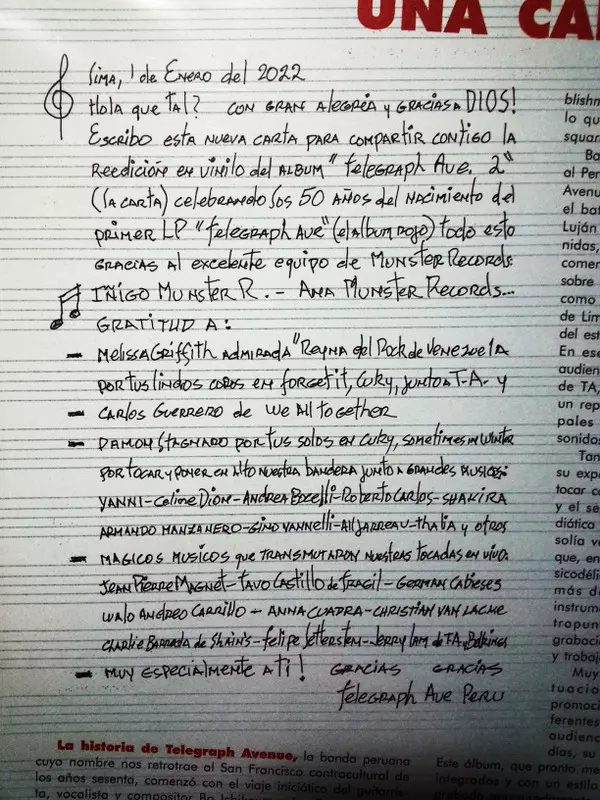 UNA CA
Lima, 1 de Enero del 2022
Hola que tal? con gran alegría y gracias a DIOS!
Escribo esta nueva carta para compartir contigo la
Reedición en vinilo del Album "Telegraph Ave. 2"
(La carta) celebrando los 50 años del nacimiento del
primer LP "Telegraph Ave" (el album rojo) todo esto
gracias al excelente equipo de Munster Records.
Iñigo Munster R. - Ana Munster Records...
Gratitud a:
- Melissa Griffith admirada "Reyna del Rock de Venezuela
por tus lindos coros en forget it, Cuky, junto a T.A. y
- Carlos Guerrero de We All Together
- Damon Stagnaro por tus solos en Cuky, sometimes in winter
por tocar y poner en alto nuestra bandera junto a grandes musicos:
Yanni - Celine Dion - Andrea Bocelli - Roberto Carlos - Shakira
Armando Manzanero - Gino Vannelli - Al Jarreau - Thalia y otros
- Magicos musicos que transmutaron nuestras tocadas en vivo.
Jean Pierre Magnet - Tavo Castillo de Fragil - German Cabieses
Walo Andreo Carrillo - Anna Cuadra - Christian Van Lacke
Charlie Barreda de Shain's - Felipe - Jerry Lam de TA, Belkings
- Muy especialmente a ti! Gracias Gracias
Telegraph Ave Peru
La historia de Telegraph Avenue, la banda peruana
cuyo nombre nos retrotrae al San Francisco contracultural de
los años sesenta, comenzó con el viaje iniciático del guitarris
ta, vocalista y compositor Bo Ichikawa
blishm
lo qu
squar
Ba
al Per
Avenu
el bat
Luján
nidas,
comer
sobre
como
de Lim
del est
En ese
audien
de TA,
un rep
pales
sonidos
Tan
su expe
tocar co
y el se
diática
solía v
que, en
sicodélic
más d
instrum
trapun
grabaci
y trabaj
Muy
tuacio
promoci
ferentes
audienc
días, su
Este álbum, que pronto me
integrados y con un estilo